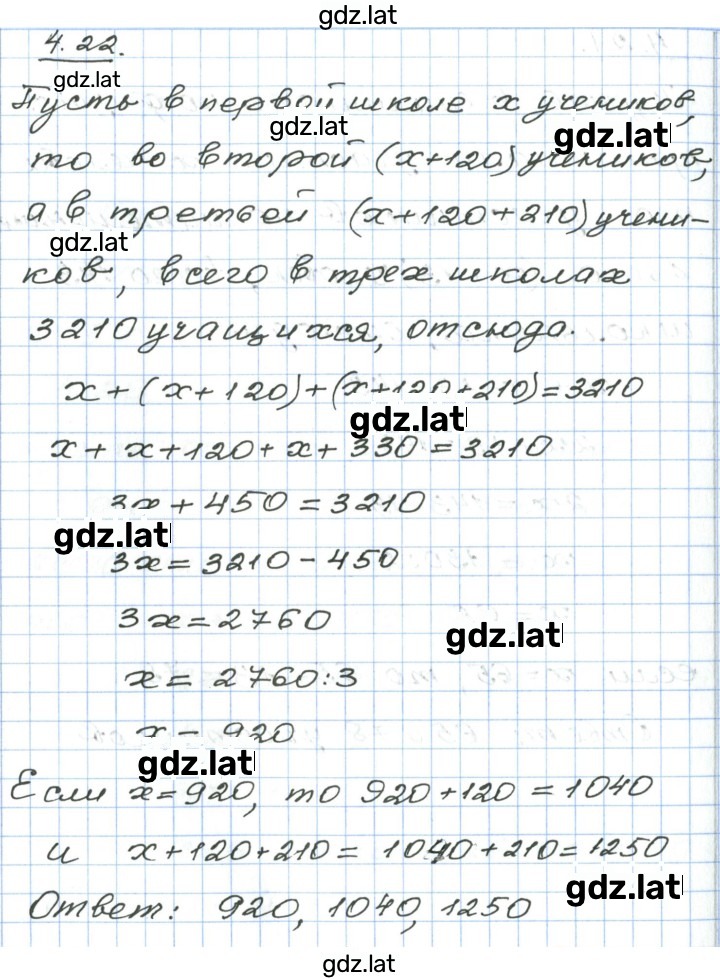 gdz.lat
4.22.
gdz.lat
Пусть в первой школе x учеников,
gdz.lat
gdz.lat
то во второй (x+120) учеников,
а в третьей (x+120+210) учени-
gdz.lat
ков, всего в трех школах
3210 учащихся, отсюда.
x+(x+120)+(x+120+210)=3210
gdz.lat
x+x+120+x+330=3210
3x+450=3210
gdz.lat
3x=3210-450
3x=2760
gdz.lat
x=2760:3
x=920
gdz.lat
Если x=920, то 920+120=1040
и x+120+210=1040+210=1250
gdz.lat
Ответ: 920, 1040, 1250
gdz.lat